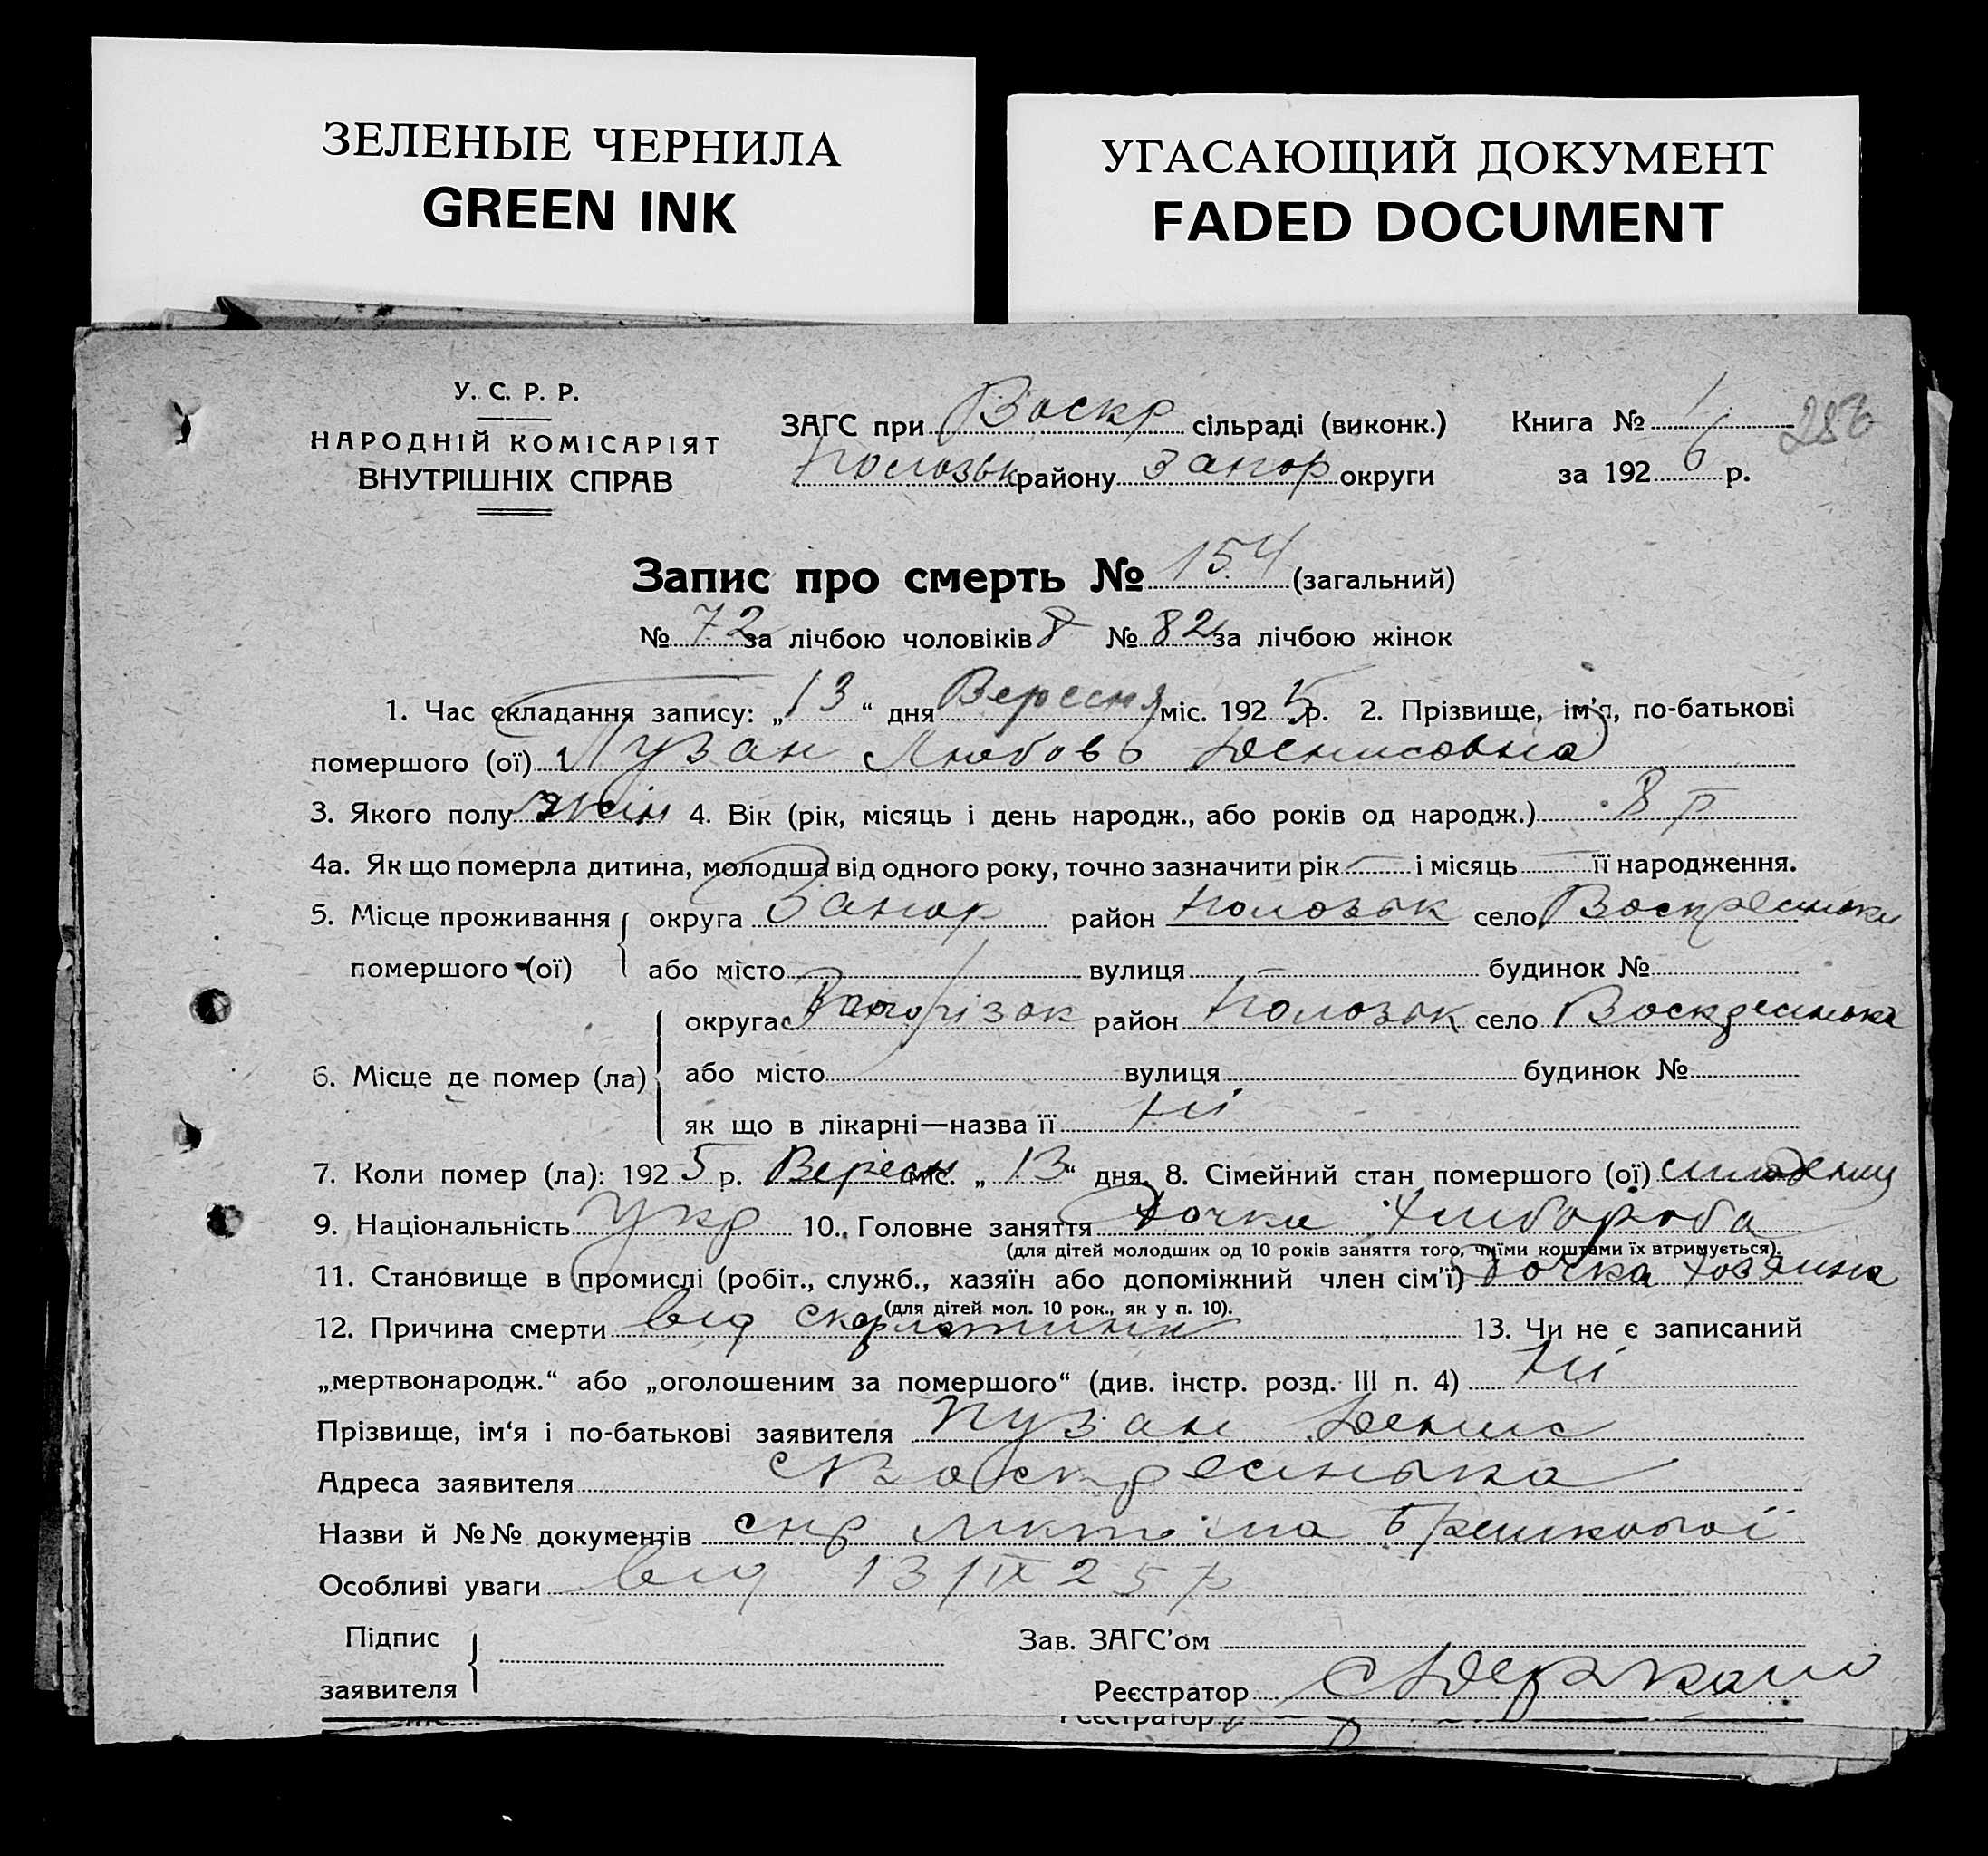 ЗЕЛЕНЫЕ ЧЕРНИЛА
GREEN INK
УГАСАЮЩИЙ ДОКУМЕНТ
FADED DOCUMENT
У. С. Р. Р.
НАРОДНІЙ КОМІСАРІЯТ
ВНУТРІШНІХ СПРАВ
ЗАГС при Воскр сільраді (виконк.)
Пологівськ району Запор округи
Книга № 1
за 1926 р.
Запис про смерть № 154 (загальний)
№ 72 за лічбою чоловіків № 82 за лічбою жінок
1. Час складання запису: „13“ дня Вересня міс. 1925 р. 2. Прізвище, ім'я, по-батькові
помершого (ої) Пузан Любовь Денисовна
3. Якого полу жін 4. Вік (рік, місяць і день народж., або років од народж.) 8 р
4а. Як що померла дитина, молодша від одного року, точно зазначити рік — і місяць — її народження.
5. Місце проживання округа Запор район село
помершого (ої) або місто вулиця — будинок №
округа район село
6. Місце де помер (ла) або місто вулиця будинок №
як що в лікарні—назва її Ні
7. Коли помер (ла): 1925 р. Вересн міс. „13“ дня. 8. Сімейний стан помершого (ої)
9. Національність Укр 10. Головне заняття Дочка Хлибороба
(для дітей молодших од 10 років заняття того, чиїми коштами їх втримується).
11. Становище в промислі (робіт., служб., хазяїн або допоміжний член сім'ї) Дочка Хозяина
(для дітей мол. 10 рок., як у п. 10).
12. Причина смерти від скарлатини 13. Чи не є записаний
„мертвонародж.“ або „оголошеним за помершого“ (див. інстр. розд. III п. 4) Ні
Прізвище, ім'я і по-батькові заявителя Пузан Денис
Адреса заявителя с Воскресинька
Назви й №№ документів
Особливі уваги від 13/IX 25 р
Підпис
заявителя
Зав. ЗАГС'ом
Реєстратор
Реєстратор